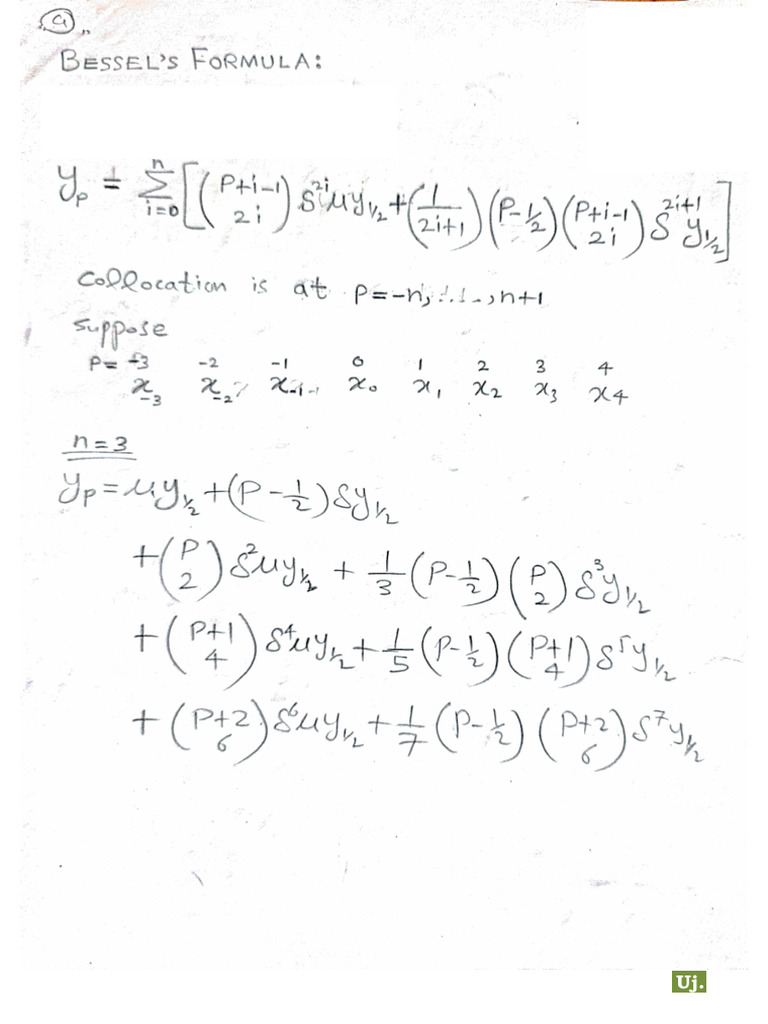 9
BESSEL'S FORMULA:
y_p = Σ_{i=0}^{n} [ (P+i-1 \over 2i) δ^{2i} μy_{1/2} + (1/(2i+1)) (P-1/2) (P+i-1 \over 2i) δ^{2i+1} y_{1/2} ]
Collocation is at P=-n, ..., n+1
suppose
P= -3 -2 -1 0 1 2 3 4
x_{-3} x_{-2} x_{-1} x_0 x_1 x_2 x_3 x_4
n=3
y_p = μy_{1/2} + (P-1/2) δy_{1/2}
+ (P \over 2) δ^2 μy_{1/2} + 1/3 (P-1/2) (P \over 2) δ^3 y_{1/2}
+ (P+1 \over 4) δ^4 μy_{1/2} + 1/5 (P-1/2) (P+1 \over 4) δ^5 y_{1/2}
+ (P+2 \over 6) δ^6 μy_{1/2} + 1/7 (P-1/2) (P+2 \over 6) δ^7 y_{1/2}
Uj.